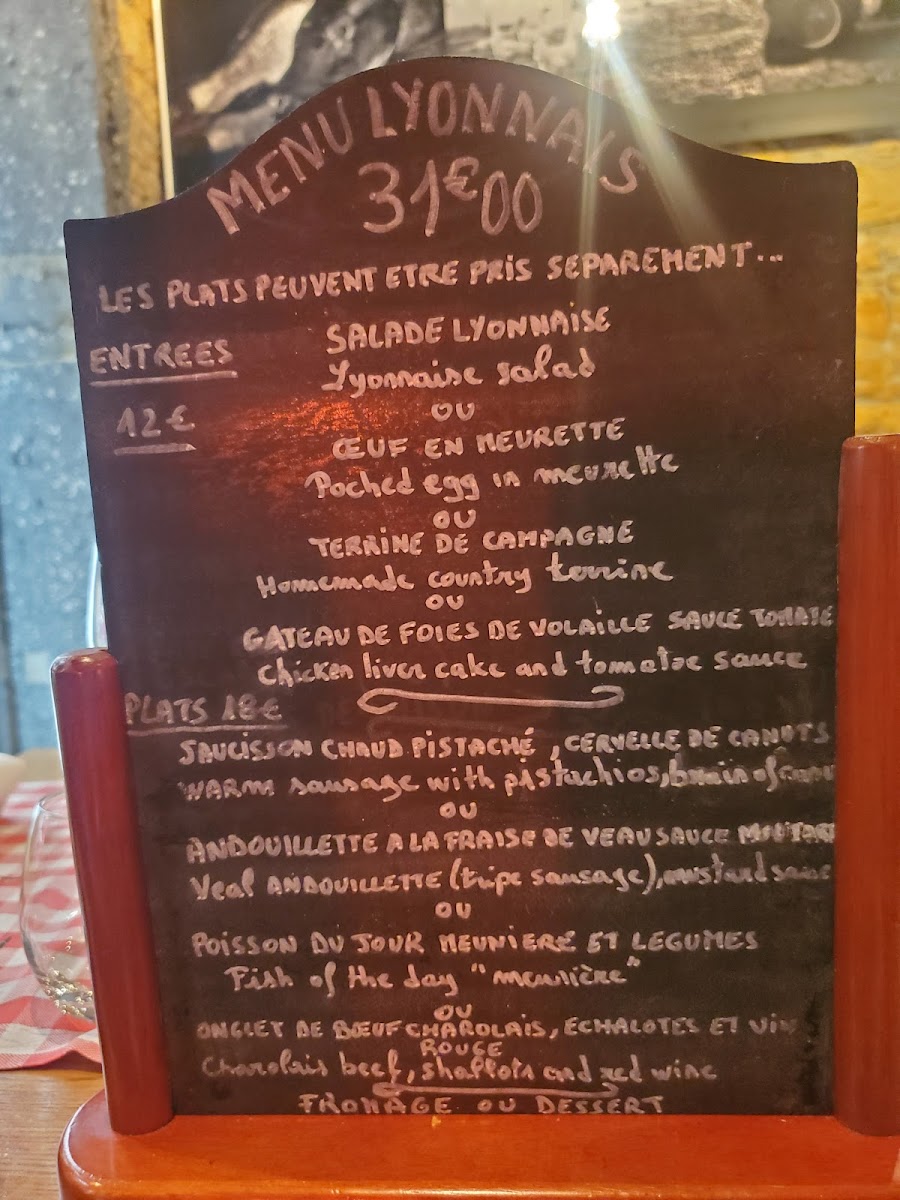 MENU LYONNAIS
31€00
LES PLATS PEUVENT ETRE PRIS SEPAREMENT...
ENTREES
12€
SALADE LYONNAISE
Lyonnaise salad
OU
ŒUF EN MEURETTE
Poched egg in meurette
OU
TERRINE DE CAMPAGNE
Homemade country terrine
OU
GATEAU DE FOIES DE VOLAILLE SAUCE TOMATE
Chicken liver cake and tomatoe sauce
PLATS 18€
SAUCISSON CHAUD PISTACHÉ, CERVELLE DE CANUTS
WARM sausage with pistachios, brain of
OU
ANDOUILLETTE A LA FRAISE DE VEAU SAUCE MOUTARDE
Veal ANDOUILLETTE (tripe sausage), mustard sauce
OU
POISSON DU JOUR MEUNIERE ET LEGUMES
Fish of the day "meunière"
OU
ONGLET DE BŒUF CHAROLAIS, ECHALOTES ET VIN
ROUGE
Charolais beef, shallots and red wine
FROMAGE OU DESSERT